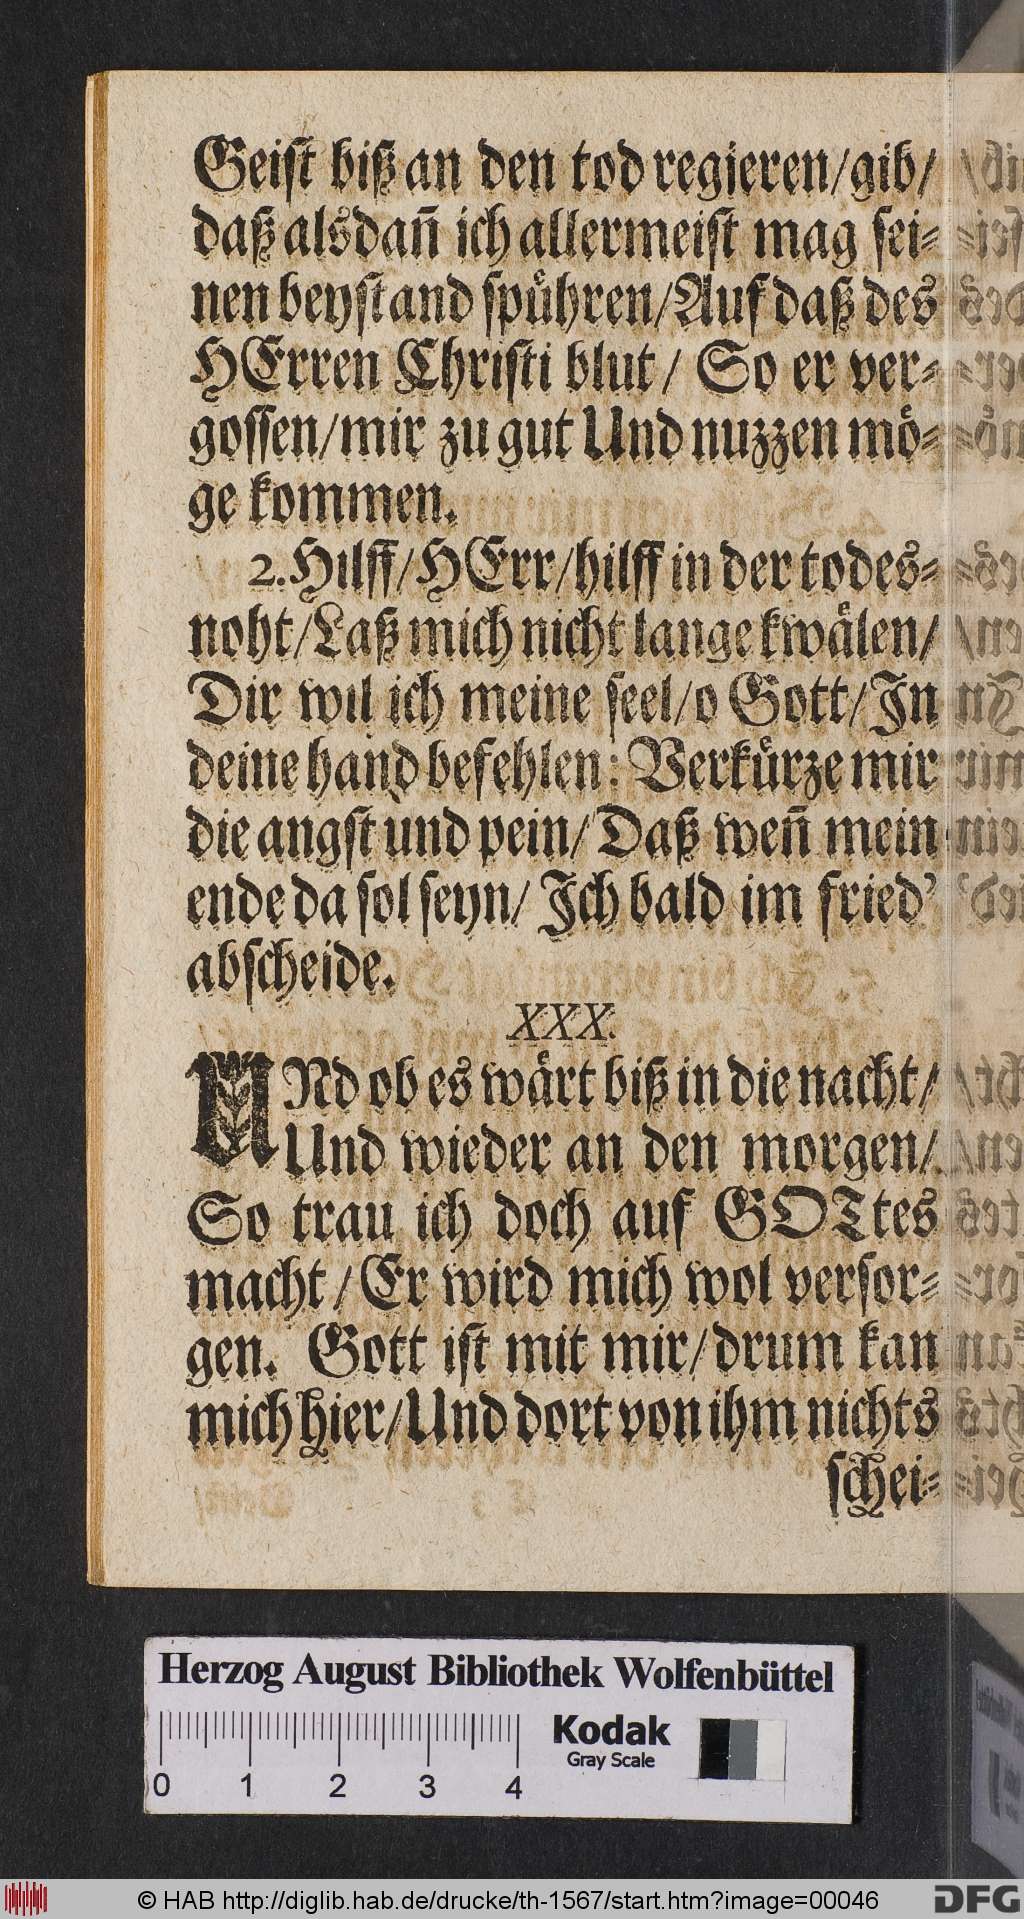 Geist biß an den tod regieren/gib/
daß alsdañ ich allermeist mag sei-
nen beystand spühren/Auf daß des
HErren Christi blut/ So er ver-
gossen/mir zu gut Und nuzzen mö-
ge kommen.
2. Hilff/HErr/hilff in der todes-
noht/Laß mich nicht lange kwälen/
Dir wil ich meine seel/o Gott/In
deine hand befehlen: Verkürze mir
die angst und pein/Daß weñ mein
ende da sol seyn/ Ich bald im fried'
abscheide.
XXX.
UNd ob es wärt biß in die nacht/
Und wieder an den morgen/
So trau ich doch auf GOTtes
macht/Er wird mich wol versor-
gen. Gott ist mit mir/drum kan
mich hier/Und dort von ihm nichts
schei-
Herzog August Bibliothek Wolfenbüttel
Kodak
Gray Scale
0 1 2 3 4
© HAB http://diglib.hab.de/drucke/th-1567/start.htm?image=00046
DFG